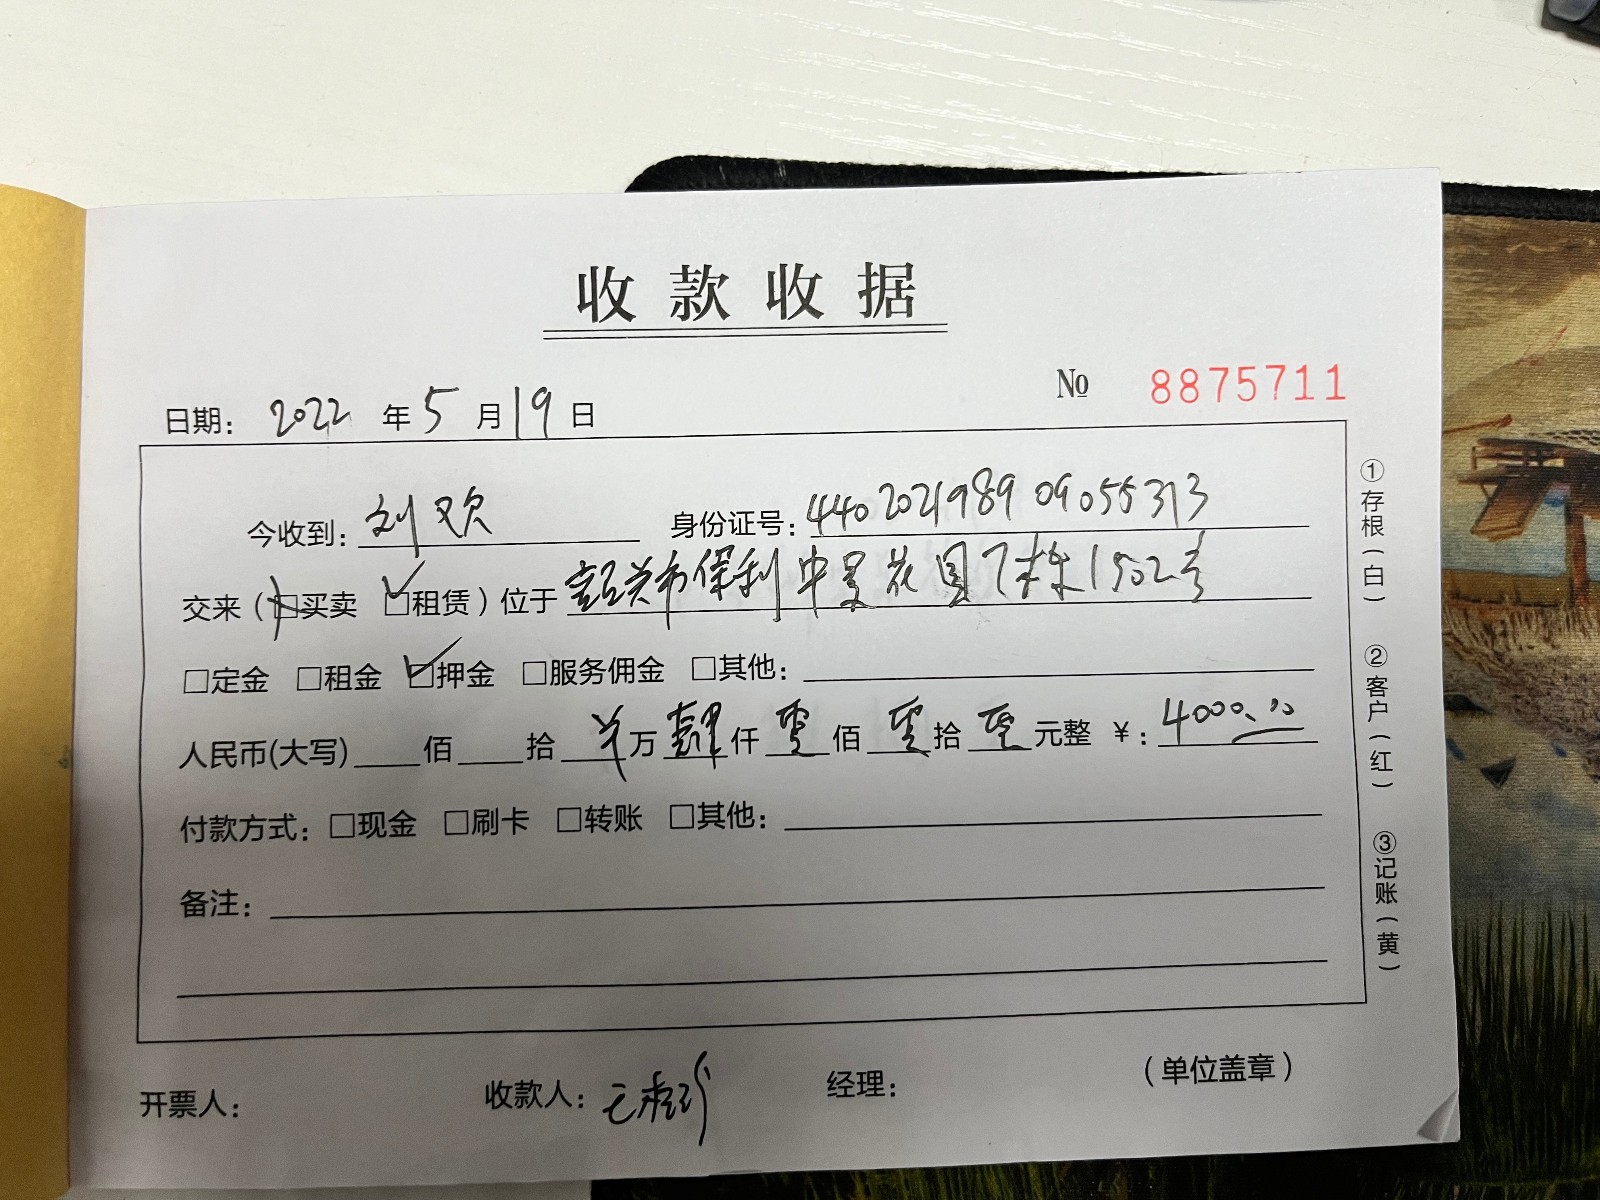 收款收据
No 8875711
日期：2022年5月19日
今收到：刘欢 身份证号：440202198909055313
交来（□买卖 ☑租赁）位于 绍兴市保利中景花园7栋1502号
□定金 □租金 ☑押金 □服务佣金 □其他：
人民币(大写) 佰 拾 万肆仟零佰零拾零元整 ¥：4000.00
付款方式：□现金 □刷卡 □转账 □其他：
备注：
开票人： 收款人： 经理： （单位盖章）
①存根（白） ②客户（红） ③记账（黄）